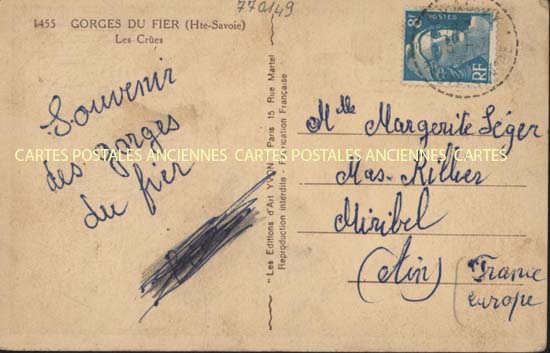 770149
1455 GORGES DU FIER (Hte-Savoie)
Les Crûes
Souvenir
des gorges
du fier
"Les Editions d'Art YVON" Paris 15 Rue Martel
Reproduction interdite - Fabrication Française
8F
POSTES
RF
Mlle Margerite Léger
Mas-Rillier
Miribel
(Ain) (France
Europe)
CARTES POSTALES ANCIENNES CARTES POSTALES ANCIENNES CARTES POSTALES ANCIENNES